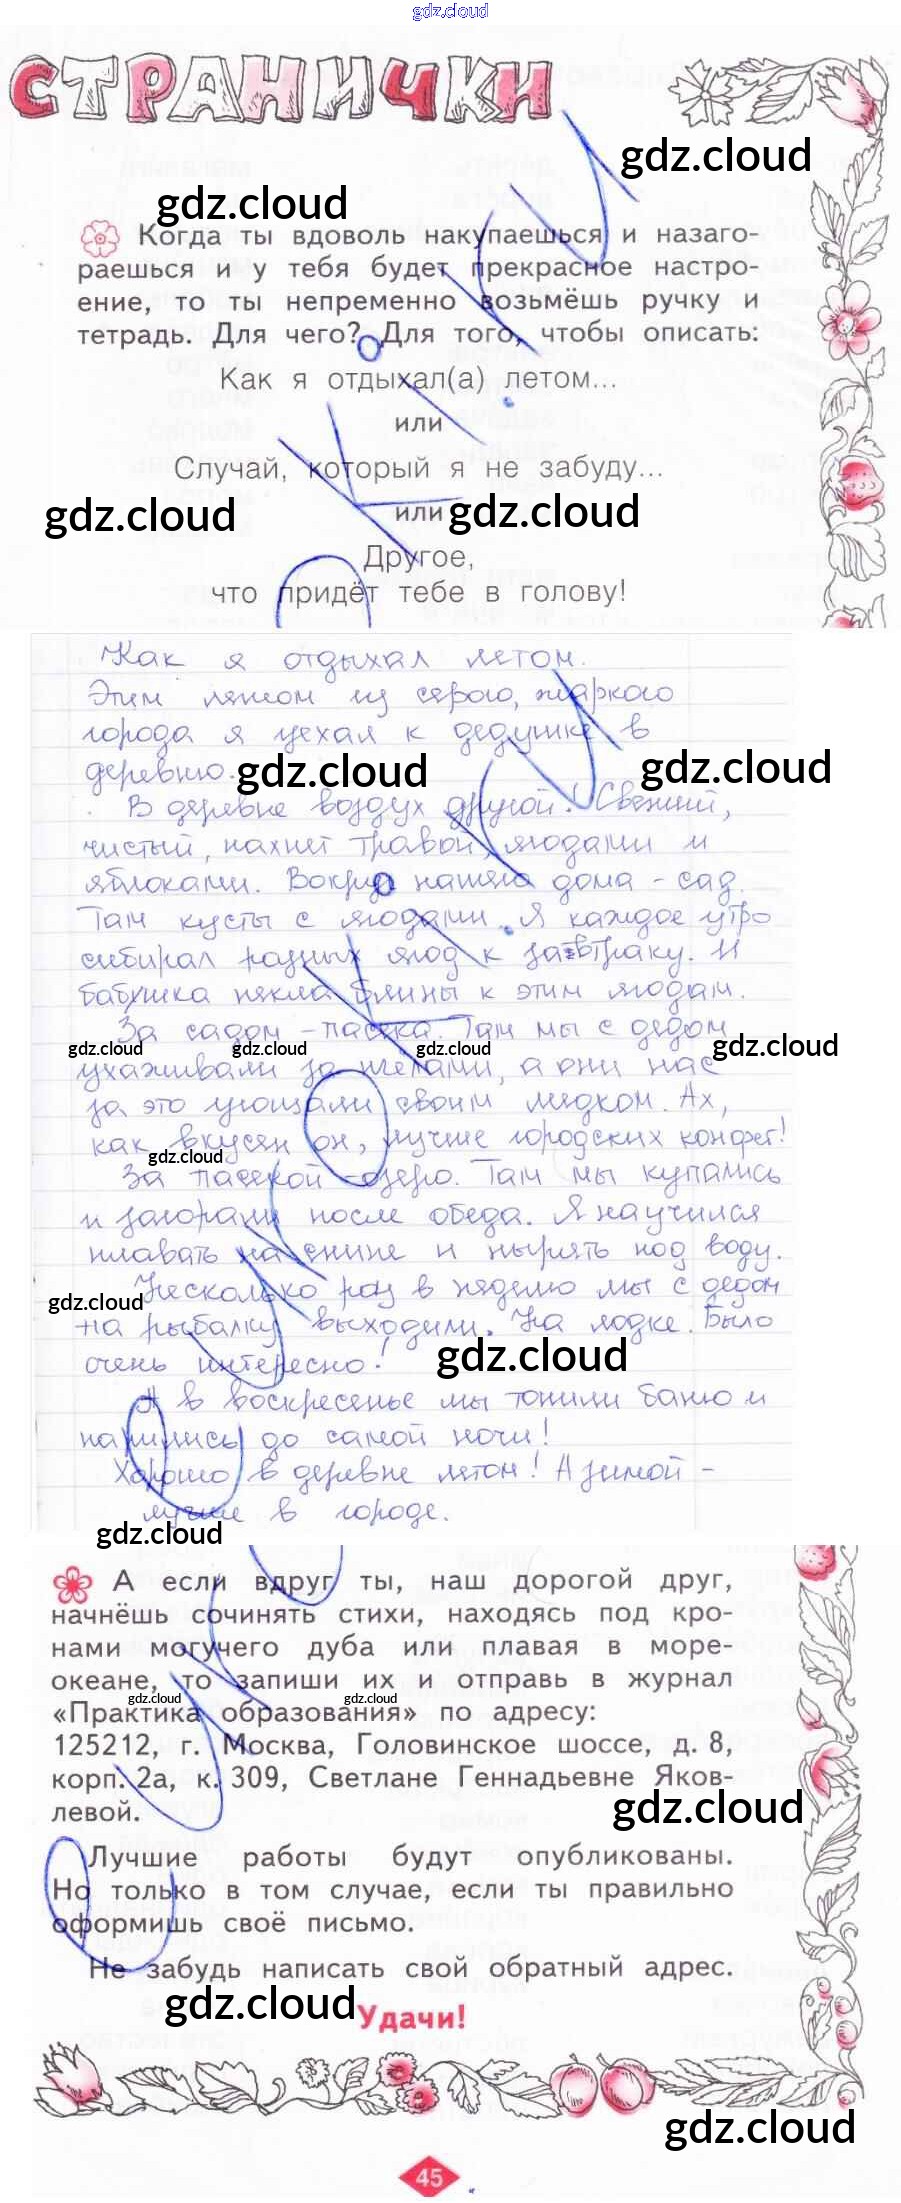 gdz.cloud
СТРАНИЧКИ
gdz.cloud
gdz.cloud
Когда ты вдоволь накупаешься и назаго-
раешься и у тебя будет прекрасное настро-
ение, то ты непременно возьмёшь ручку и
тетрадь. Для чего? Для того, чтобы описать:
Как я отдыхал(а) летом...
или
Случай, который я не забуду...
gdz.cloud
или
gdz.cloud
Другое,
что придёт тебе в голову!
Как я отдыхал летом.
Этим летом из серого, жаркого
города я уехал к дедушке в
деревню.
gdz.cloud
gdz.cloud
В деревне воздух другой! Свежий,
чистый, пахнет травой, ягодами и
яблоками. Вокруг нашего дома - сад.
Там кусты с ягодами. Я каждое утро
собирал разных ягод к завтраку. И
бабушка пекла блины к этим ягодам.
За садом - пасека. Там мы с дедом
gdz.cloud
gdz.cloud
gdz.cloud
gdz.cloud
ухаживали за пчелами, а они нас
за это угощали своим медком. Ах,
как вкусен он, лучше городских конфет!
gdz.cloud
За пасекой - озеро. Там мы купались
и загорали после обеда. Я научился
плавать на спине и нырять под воду.
Несколько раз в неделю мы с дедом
gdz.cloud
на рыбалку выходили. На лодке. Было
очень интересно!
gdz.cloud
А в воскресенье мы топили баню и
парились до самой ночи!
Хорошо в деревне летом! А зимой -
лучше в городе.
gdz.cloud
А если вдруг ты, наш дорогой друг,
начнёшь сочинять стихи, находясь под кро-
нами могучего дуба или плавая в море-
океане, то запиши их и отправь в журнал
gdz.cloud
gdz.cloud
«Практика образования» по адресу:
125212, г. Москва, Головинское шоссе, д. 8,
корп. 2а, к. 309, Светлане Геннадьевне Яков-
левой.
gdz.cloud
Лучшие работы будут опубликованы.
Но только в том случае, если ты правильно
оформишь своё письмо.
Не забудь написать свой обратный адрес.
gdz.cloud
Удачи!
gdz.cloud
45